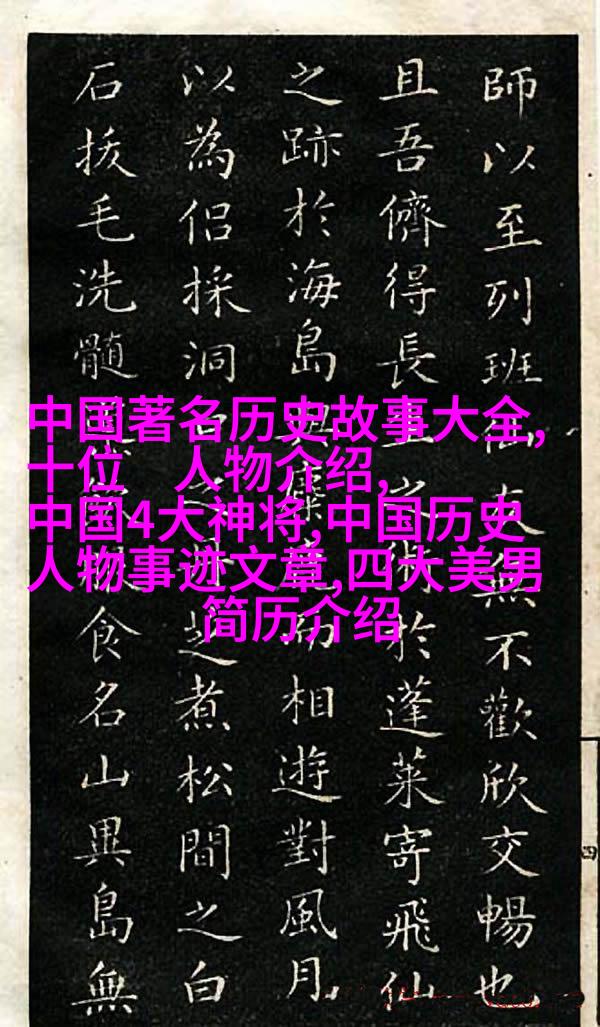 中国著名历史故事大全,
十位 人物介绍,
中国4大神将,中国历史
人物事迹文章,四大美男
简历介绍
師以至列班仙友無不歡欣交暢也
且吾儕得長生術於蓬萊寄飛仙
之跡於海島與麋相遊對風月
以為侶採洞之芝煮松間之白
石拔毛洗髓食名山異島無